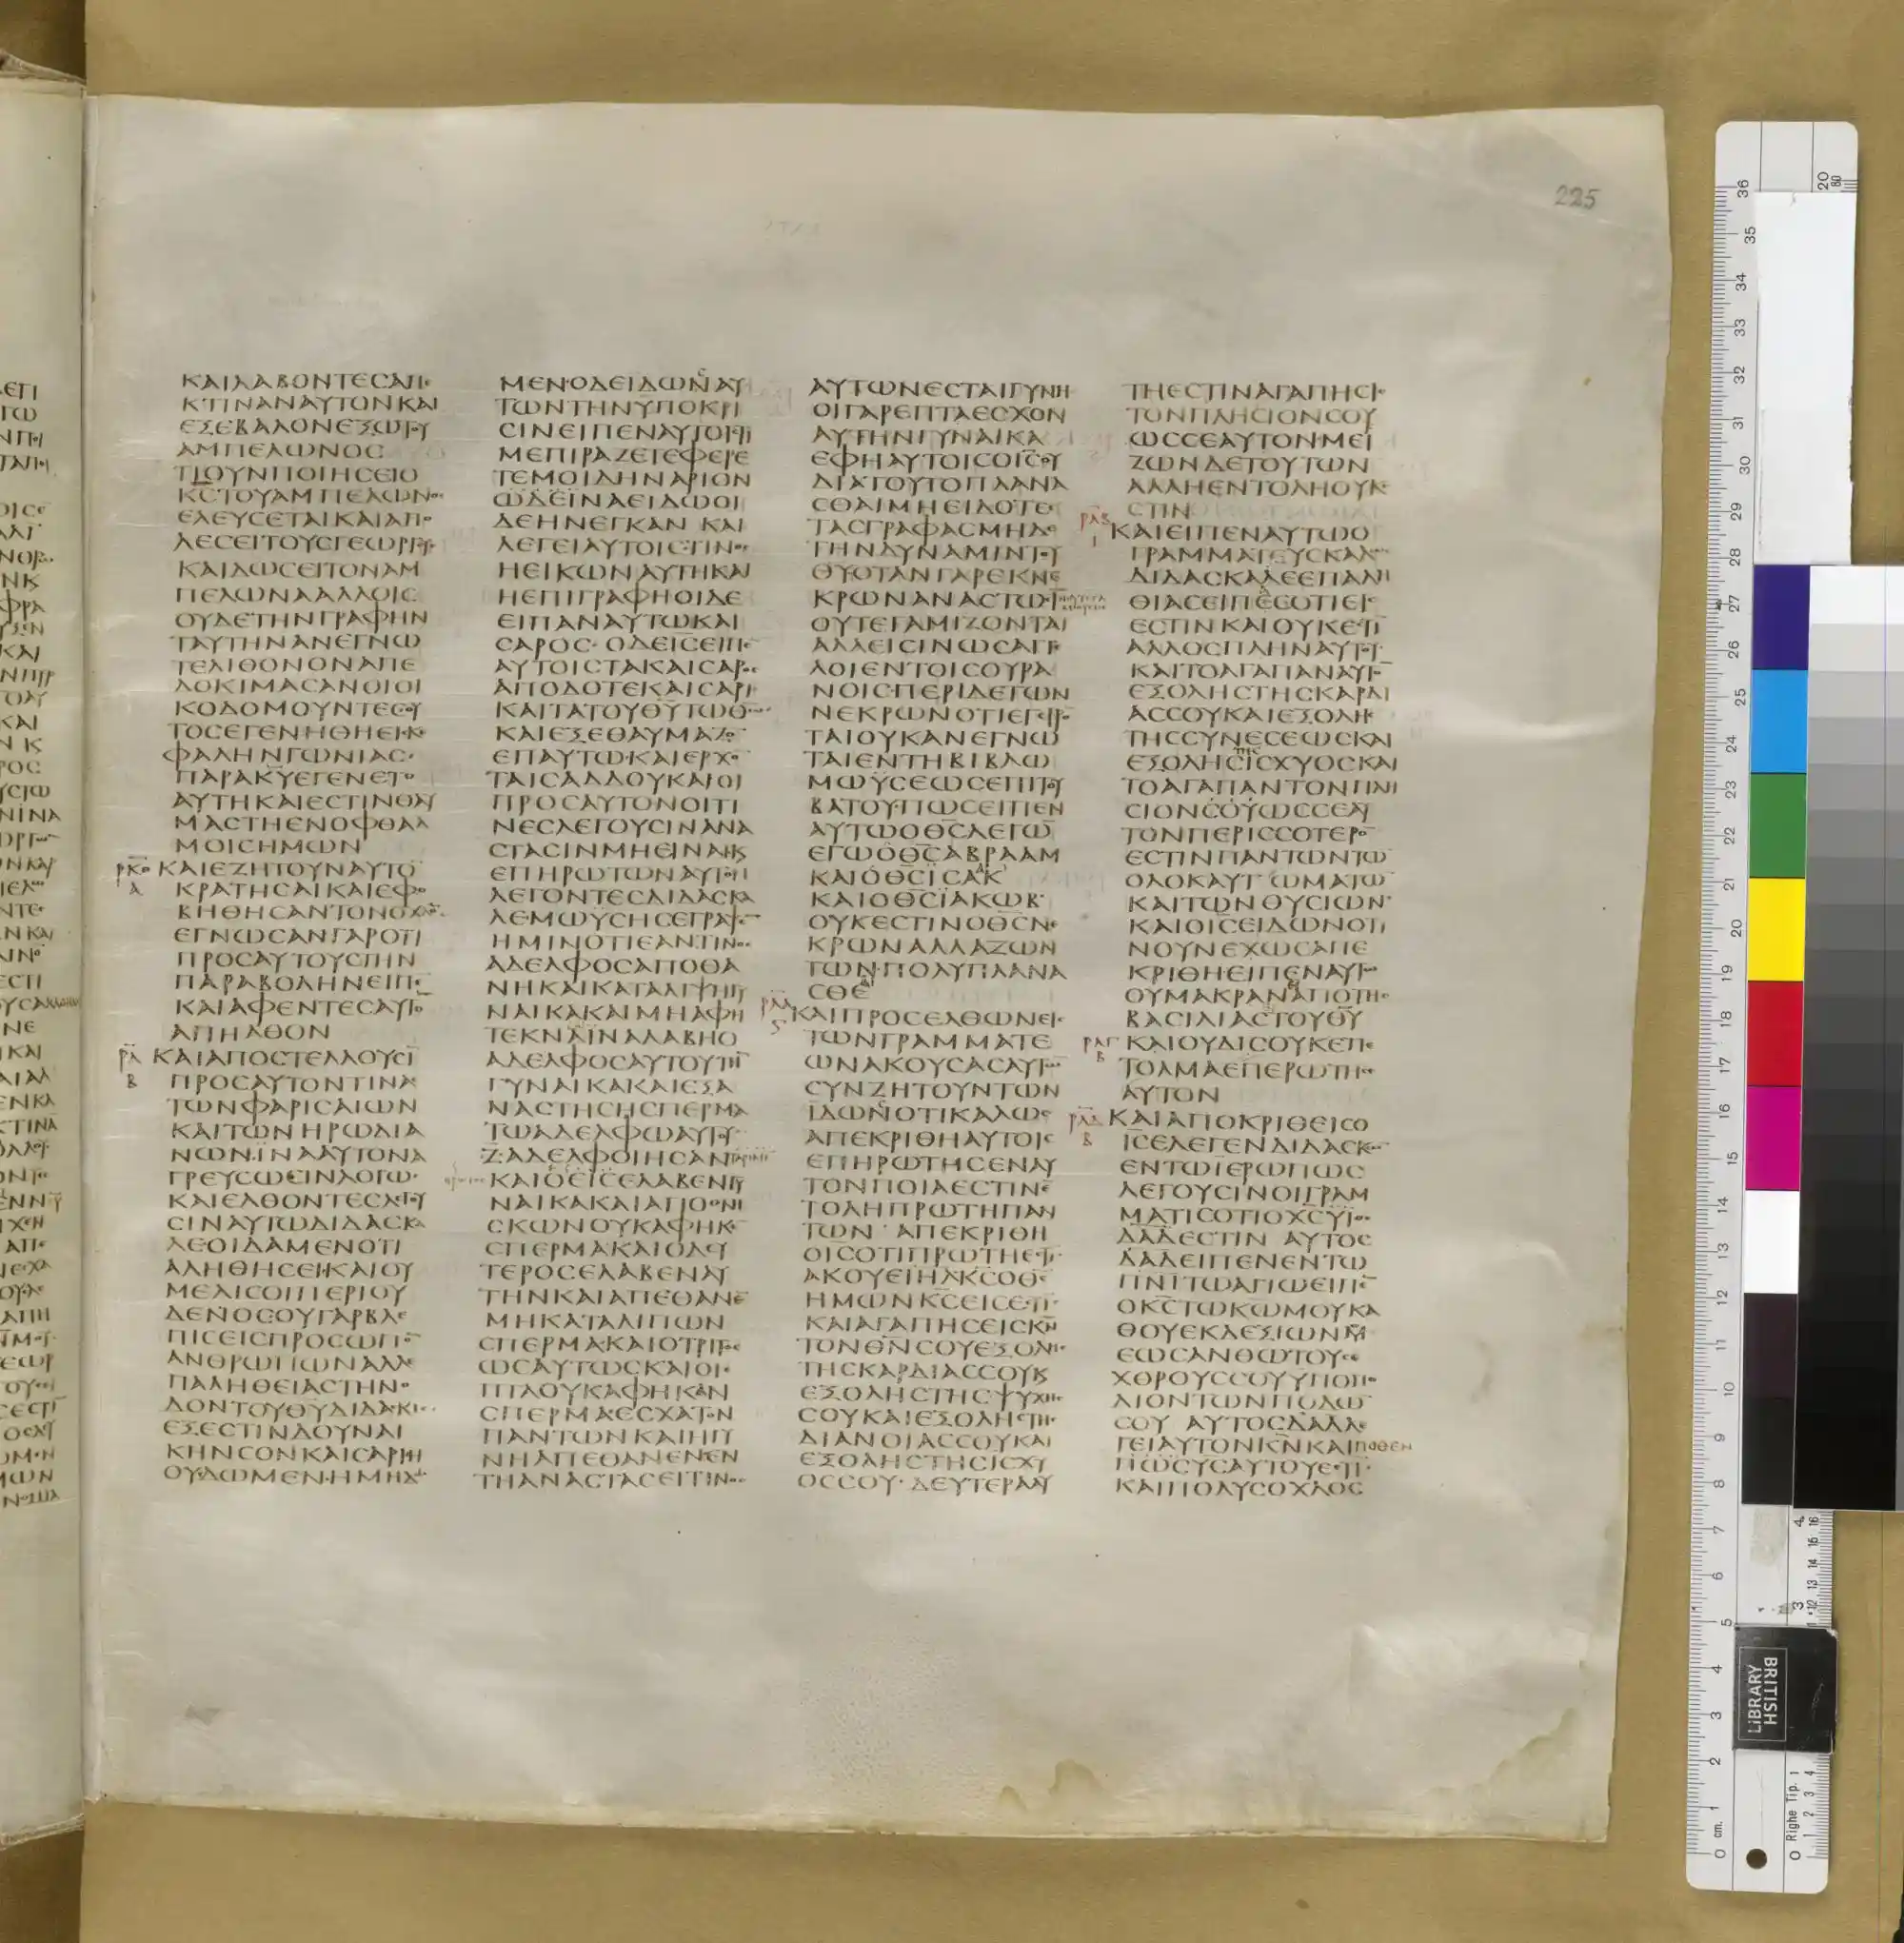 225
ΚΑΙΛΑΒΟΝΤΕΣΑΠΕ
ΚΤΙΝΑΝΑΥΤΟΝΚΑΙ
ΕΞΕΒΑΛΟΝΕΞΩΤΟΥ
ΑΜΠΕΛΩΝΟΣ
ΤΙΟΥΝΠΟΙΗΣΕΙΟ
ΚΣΤΟΥΑΜΠΕΛΩΝΟΣ
ΕΛΕΥΣΕΤΑΙΚΑΙΑΠΟ
ΛΕΣΕΙΤΟΥΣΓΕΩΡΓΟΥΣ
ΚΑΙΔΩΣΕΙΤΟΝΑΜ
ΠΕΛΩΝΑΑΛΛΟΙΣ
ΟΥΔΕΤΗΝΓΡΑΦΗΝ
ΤΑΥΤΗΝΑΝΕΓΝΩ
ΤΕΛΙΘΟΝΟΝΑΠΕ
ΔΟΚΙΜΑΣΑΝΟΙΟΙ
ΚΟΔΟΜΟΥΝΤΕΣΟΥ
ΤΟΣΕΓΕΝΗΘΗΕΙΣΚΕ
ΦΑΛΗΝΓΩΝΙΑΣ·
ΠΑΡΑΚΥΕΓΕΝΕΤΟ
ΑΥΤΗΚΑΙΕΣΤΙΝΘΑΥ
ΜΑΣΤΗΕΝΟΦΘΑΛ
ΜΟΙΣΗΜΩΝ
ΡΚΘ Α ΚΑΙΕΖΗΤΟΥΝΑΥΤΟ̅
ΚΡΑΤΗΣΑΙΚΑΙΕΦΟ
ΒΗΘΗΣΑΝΤΟΝΟΧΛΟ̅
ΕΓΝΩΣΑΝΓΑΡΟΤΙ
ΠΡΟΣΑΥΤΟΥΣΤΗΝ
ΠΑΡΑΒΟΛΗΝΕΙΠΕ
ΚΑΙΑΦΕΝΤΕΣΑΥΤΟ̅
ΑΠΗΛΘΟΝ
ΡΛ Β ΚΑΙΑΠΟΣΤΕΛΛΟΥΣΙ̅
ΠΡΟΣΑΥΤΟΝΤΙΝΑΣ
ΤΩΝΦΑΡΙΣΑΙΩΝ
ΚΑΙΤΩΝΗΡΩΔΙΑ
ΝΩΝΙΝΑΑΥΤΟΝΑ
ΓΡΕΥΣΩΣΙΝΛΟΓΩ·
ΚΑΙΕΛΘΟΝΤΕΣΛΕΓΟΥ
ΣΙΝΑΥΤΩΔΙΔΑΣΚΑ
ΛΕΟΙΔΑΜΕΝΟΤΙ
ΑΛΗΘΗΣΕΙΚΑΙΟΥ
ΜΕΛΙΣΟΙΠΕΡΙΟΥ
ΔΕΝΟΣΟΥΓΑΡΒΛΕ
ΠΙΣΕΙΣΠΡΟΣΩΠΟ̅
ΑΝΘΡΩΠΩΝΑΛΛΕ
ΠΑΛΗΘΕΙΑΣΤΗΝΟ
ΔΟΝΤΟΥΘΥΔΙΔΑΣΚΙΣ
ΕΞΕΣΤΙΝΔΟΥΝΑΙ
ΚΗΝΣΟΝΚΑΙΣΑΡΙΗ
ΟΥΔΩΜΕΝΗΜΗΔΩ
ΜΕΝΟΔΕΙΔΩΝΑΥ
ΤΩΝΤΗΝΥΠΟΚΡΙ
ΣΙΝΕΙΠΕΝΑΥΤΟΙΣΤΙ
ΜΕΠΙΡΑΖΕΤΕΦΕΡΕ
ΤΕΜΟΙΔΗΝΑΡΙΟΝ
ΩΔΕΪΝΑΕΙΔΩΟΙ
ΔΕΗΝΕΓΚΑΝ ΚΑΙ
ΛΕΓΕΙΑΥΤΟΙΣΤΙΝΟΣ
ΗΕΙΚΩΝΑΥΤΗΚΑΙ
ΗΕΠΙΓΡΑΦΗΟΙΔΕ
ΕΙΠΑΝΑΥΤΩΚΑΙ
ΣΑΡΟΣ· ΟΔΕΙΣΕΙΠΕ̅
ΑΥΤΟΙΣΤΑΚΑΙΣΑΡΟΣ
ΑΠΟΔΟΤΕΚΑΙΣΑΡΙ
ΚΑΙΤΑΤΟΥΘΥΤΩΘΩ
ΚΑΙΕΞΕΘΑΥΜΑΖΟ̅
ΕΠΑΥΤΩ·ΚΑΙΕΡΧΟ̅
ΤΑΙΣΑΔΔΟΥΚΑΙΟΙ
ΠΡΟΣΑΥΤΟΝΟΙΤΙ
ΝΕΣΛΕΓΟΥΣΙΝΑΝΑ
ΣΤΑΣΙΝΜΗΕΙΝΑΙΚ
ΕΠΗΡΩΤΩΝΑΥΤΟΝ
ΛΕΓΟΝΤΕΣΔΙΔΑΣΚΑ
ΛΕΜΩΫΣΗΣΕΓΡΑΨΕ̅
ΗΜΙΝΟΤΙΕΑΝΤΙΝΟΣ
ΑΔΕΛΦΟΣΑΠΟΘΑ
ΝΗΚΑΙΚΑΤΑΛΙΨΗΓΥ
ΝΑΙΚΑΚΑΙΜΗΑΦΗ
ΤΕΚΝΑΪΝΑΛΑΒΗΟ
ΑΔΕΛΦΟΣΑΥΤΟΥΤΗ̅
ΓΥΝΑΙΚΑΚΑΙΕΞΑ
ΝΑΣΤΗΣΗΣΠΕΡΜΑ
ΤΩΑΔΕΛΦΩΑΥΤΟΥ
Ζ·ΑΔΕΛΦΟΙΗΣΑΝ
ΚΑΙΟΕΙΣΕΛΑΒΕΝΓΥ
ΝΑΙΚΑΚΑΙΑΠΟΘΝΗ
ΣΚΩΝΟΥΚΑΦΗΚΕ̅
ΣΠΕΡΜΑΚΑΙΟΔΕΥ
ΤΕΡΟΣΕΛΑΒΕΝΑΥ
ΤΗΝΚΑΙΑΠΕΘΑΝΕ̅
ΜΗΚΑΤΑΛΙΠΩΝ
ΣΠΕΡΜΑ·ΚΑΙΟΤΡΙΤΟΣ
ΩΣΑΥΤΩΣΚΑΙΟΙΕ
ΠΤΑΟΥΚΑΦΗΚΑΝ
ΣΠΕΡΜΑ·ΕΣΧΑΤΟΝ
ΠΑΝΤΩΝΚΑΙΗΓΥ
ΝΗΑΠΕΘΑΝΕΝΕΝ
ΤΗΑΝΑΣΤΑΣΕΙΤΙΝΟΣ
ΑΥΤΩΝΕΣΤΑΙΓΥΝΗ
ΟΙΓΑΡΕΠΤΑΕΣΧΟΝ
ΑΥΤΗΝΓΥΝΑΙΚΑ
ΕΦΗΑΥΤΟΙΣΟΙΣΟΥ
ΔΙΑΤΟΥΤΟΠΛΑΝΑ
ΣΘΑΙΜΗΕΙΔΟΤΕΣ
ΤΑΣΓΡΑΦΑΣΜΗΔΕ
ΤΗΝΔΥΝΑΜΙΝΤΟΥ
ΘΥΟΤΑΝΓΑΡΕΚΝΕ
ΚΡΩΝΑΝΑΣΤΩΣΙ̅
ΟΥΤΕΓΑΜΙΖΟΝΤΑΙ
ΑΛΛΕΙΣΙΝΩΣΑΓΓΕ
ΛΟΙΕΝΤΟΙΣΟΥΡΑ
ΝΟΙΣ·ΠΕΡΙΔΕΤΩΝ
ΝΕΚΡΩΝΟΤΙΕΓΕΙΡΟ̅
ΤΑΙΟΥΚΑΝΕΓΝΩ
ΤΑΙΕΝΤΗΒΙΒΛΩ
ΜΩΫΣΕΩΣΕΠΙΤΟΥ
ΒΑΤΟΥ·ΠΩΣΕΙΠΕΝ
ΑΥΤΩΟΘΣΛΕΓΩ̅
ΕΓΩΟΘΣΑΒΡΑΑΜ
ΚΑΙΟΘΣΪΣΑΚ
ΚΑΙΟΘΣΪΑΚΩΒ·
ΟΥΚΕΣΤΙΝΟΘΣΝΕ
ΚΡΩΝΑΛΛΑΖΩΝ
ΤΩΝ·ΠΟΛΥΠΛΑΝΑ
ΣΘΕ
ΡΛΑ ΚΑΙΠΡΟΣΕΛΘΩΝΕΙΣ
ΤΩΝΓΡΑΜΜΑΤΕ
ΩΝΑΚΟΥΣΑΣΑΥΤΩ̅
ΣΥΝΖΗΤΟΥΝΤΩΝ
ΪΔΩΝΟΤΙΚΑΛΩΣ
ΑΠΕΚΡΙΘΗΑΥΤΟΙΣ
ΕΠΗΡΩΤΗΣΕΝΑΥ
ΤΟΝΠΟΙΑΕΣΤΙΝΕ̅
ΤΟΛΗΠΡΩΤΗΠΑΝ
ΤΩΝ· ΑΠΕΚΡΙΘΗ
ΟΙΣΟΤΙΠΡΩΤΗΕΣΤΙ̅
ΑΚΟΥΕΙΗΛΚΣΟΘΣ
ΗΜΩΝΚΣΕΙΣΕΣΤΙ̅
ΚΑΙΑΓΑΠΗΣΕΙΣΚΝ
ΤΟΝΘΝΣΟΥΕΞΟΛΗΣ
ΤΗΣΚΑΡΔΙΑΣΣΟΥΚ
ΕΞΟΛΗΣΤΗΣΨΥΧΗΣ
ΣΟΥΚΑΙΕΞΟΛΗΣΤΗΣ
ΔΙΑΝΟΙΑΣΣΟΥΚΑΙ
ΕΞΟΛΗΣΤΗΣΙΣΧΥ
ΟΣΣΟΥ· ΔΕΥΤΕΡΑΑΥ
ΤΗΕΣΤΙΝΑΓΑΠΗΣΙΣ
ΤΟΝΠΛΗΣΙΟΝΣΟΥ
ΩΣΣΕΑΥΤΟΝ·ΜΕΙ
ΖΩΝΔΕΤΟΥΤΩΝ
ΑΛΛΗΕΝΤΟΛΗΟΥΚΕ
ΣΤΙΝ
ΡΛΒ ΚΑΙΕΙΠΕΝΑΥΤΩΟ
ΓΡΑΜΜΑΤΕΥΣΚΑΛΩΣ
ΔΙΔΑΣΚΑΛΕΕΠΑΛΗ
ΘΙΑΣΕΙΠΕΣΟΤΙΕΙΣ
ΕΣΤΙΝΚΑΙΟΥΚΕΣΤΙ̅
ΑΛΛΟΣΠΛΗΝΑΥΤΟΥ
ΚΑΙΤΟΑΓΑΠΑΝΑΥΤΟ̅
ΕΞΟΛΗΣΤΗΣΚΑΡΔΙ
ΑΣΣΟΥΚΑΙΕΞΟΛΗΣ
ΤΗΣΣΥΝΕΣΕΩΣΚΑΙ
ΕΞΟΛΗΣΙΣΧΥΟΣΚΑΙ
ΤΟΑΓΑΠΑΝΤΟΝΠΛΗ
ΣΙΟΝΣΟΥΩΣΣΕΑΥ
ΤΟΝΠΕΡΙΣΣΟΤΕΡΟ̅
ΕΣΤΙΝΠΑΝΤΩΝΤΩ̅
ΟΛΟΚΑΥΤΩΜΑΤΩ̅
ΚΑΙΤΩΝΘΥΣΙΩΝ·
ΚΑΙΟΙΣΕΙΔΩΝΟΤΙ
ΝΟΥΝΕΧΩΣΑΠΕ
ΚΡΙΘΗΕΙΠΕΝΑΥΤΩ
ΟΥΜΑΚΡΑΝΑΠΟΤΗΣ
ΒΑΣΙΛΙΑΣΤΟΥΘΥ
ΡΛΓ Β ΚΑΙΟΥΔΙΣΟΥΚΕΤΙ
ΤΟΛΜΑΕΠΕΡΩΤΗΣΑΙ
ΑΥΤΟΝ
ΡΛΔ Β ΚΑΙΑΠΟΚΡΙΘΕΙΣΟ
ΙΣΕΛΕΓΕΝΔΙΔΑΣΚΩ̅
ΕΝΤΩΪΕΡΩΠΩΣ
ΛΕΓΟΥΣΙΝΟΙΓΡΑΜ
ΜΑΤΙΣΟΤΙΟΧΣΥΙΟΣ
ΔΑΔΕΣΤΙΝ ΑΥΤΟΣ
ΔΑΔΕΙΠΕΝΕΝΤΩ
ΠΝΙΤΩΑΓΙΩΕΙΠΕ̅
ΟΚΣΤΩΚΩΜΟΥΚΑ
ΘΟΥΕΚΔΕΞΙΩΝΜΟΥ
ΕΩΣΑΝΘΩΤΟΥΣΕ
ΧΘΡΟΥΣΣΟΥΥΠΟΠΟ
ΔΙΟΝΤΩΝΠΟΔΩ̅
ΣΟΥ ΑΥΤΟΣΔΑΔΛΕ
ΓΕΙΑΥΤΟΝΚΝΚΑΙΠΟΘΕΝ
ΠΩΣΥΣΑΥΤΟΥΕΣΤΙ̅
ΚΑΙΠΟΛΥΣΟΧΛΟΣ
BRITISH LIBRARY